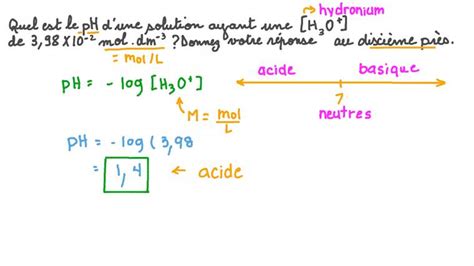 hydronium
Quel est le pH d'une solution ayant une [H₃O⁺]
de 3,98 X10⁻² mol.dm⁻³ ? Donnez votre réponse au dixième près.
= mol/L
acide basique
pH = - log [H₃O⁺]
7
M = mol/L
neutres
pH = - log (3,98
= 1,4 ← acide